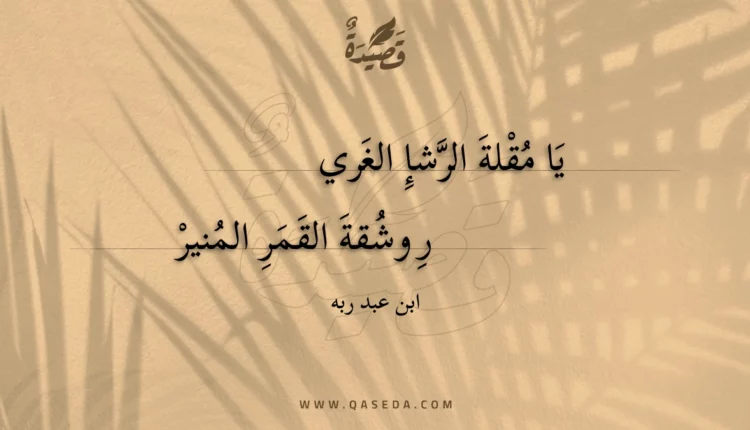 قَصِيْدَةٌ
يَا مُقْلةَ الرَّشإِ الغَري
رِ وشُقةَ القَمَرِ المُنيرْ
ابن عبد ربه
WWW.QASEDA.COM